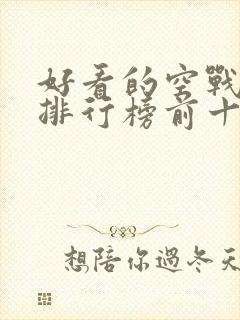 好看的空戰
排行榜前十
想陪你過冬天